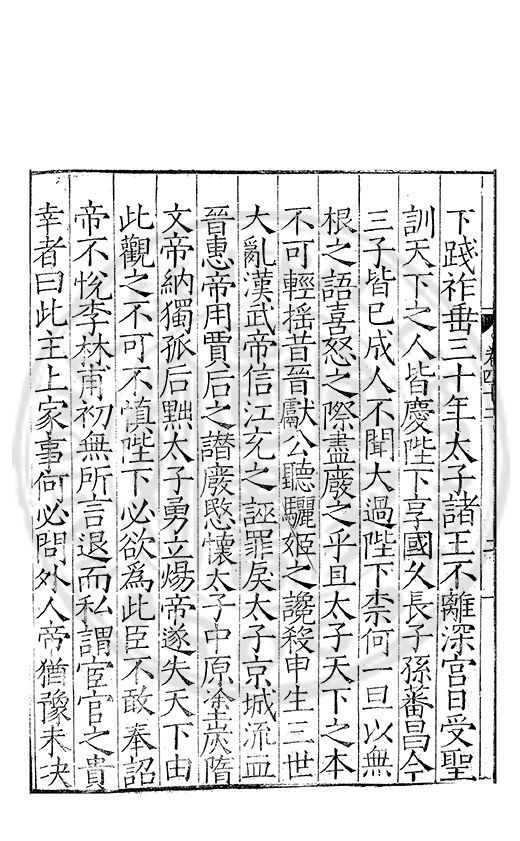 下踐祚垂三十年太子諸王不離深宮日受聖
訓天下之人皆慶陛下享國久長子孫蕃昌今
三子皆已成人不聞大過陛下柰何一旦以無
根之語喜怒之際盡廢之乎且太子天下之本
不可輕摇昔晉獻公聽驪姬之讒殺申生三世
大亂漢武帝信江充之誣罪戾太子京城流血
晉惠帝用賈后之譖廢愍懷太子中原塗炭隋
文帝納獨孤后黜太子勇立煬帝遂失天下由
此觀之不可不慎陛下必欲爲此臣不敢奉詔
帝不悅李林甫初無所言退而私謂宦官之貴
幸者曰此主上家事何必問外人帝猶豫未决